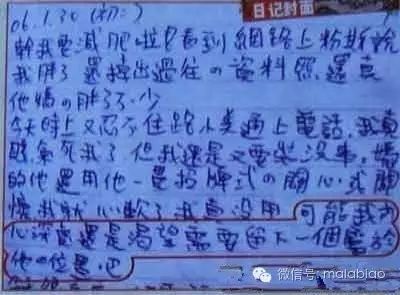 日记封面
06.1.30 (初二)
幹我要減肥啦!看到網路上粉絲說
我胖了 還挖出過往の資料照 還真
他媽の胖了不少
今天晚上又忍不住跟小美通上電話 我真
氣死我了 但我還是又要裝沒事. 媽
的他還用他一貫招牌式の關心 或關
懷我就心軟了 我真沒用 可能我內
心深處還是渴望需要留下一個屬於
他の位置吧
微信号: malabiao